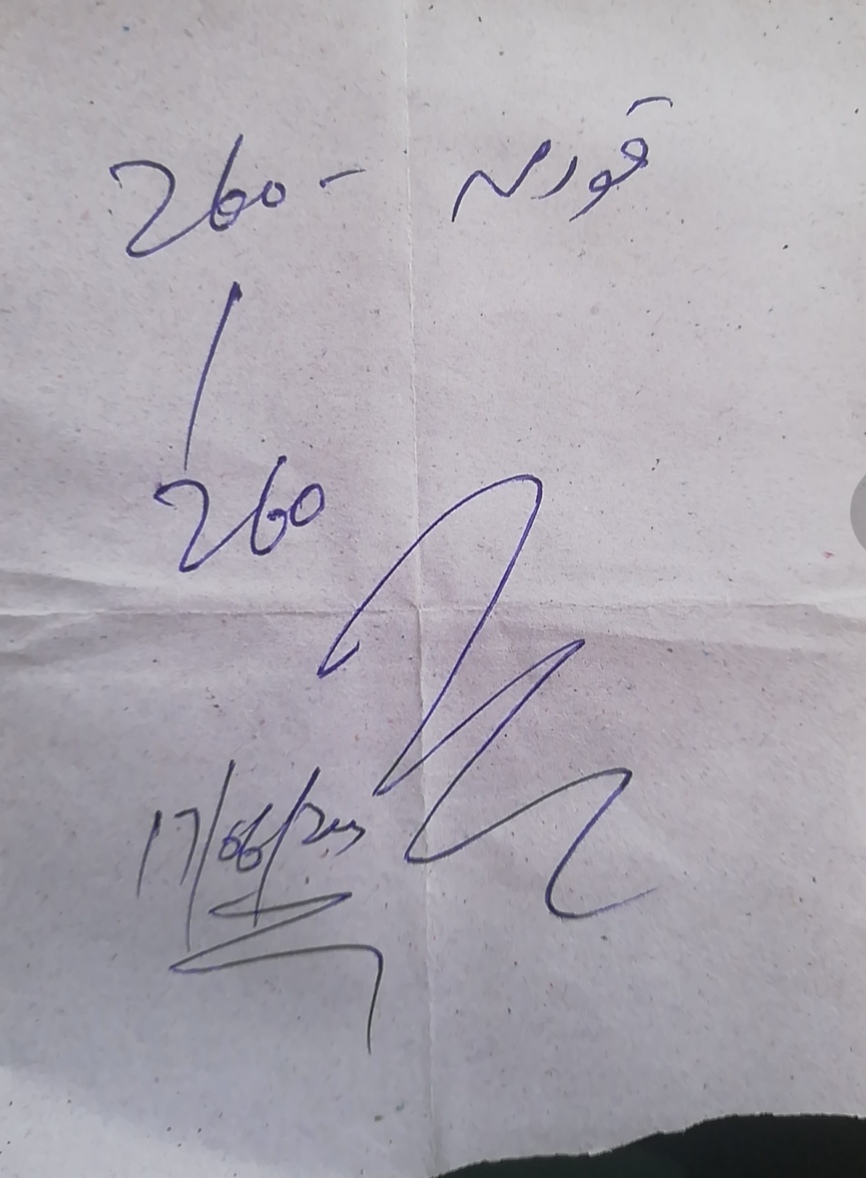 قورمہ 260-
260
17/06/2023